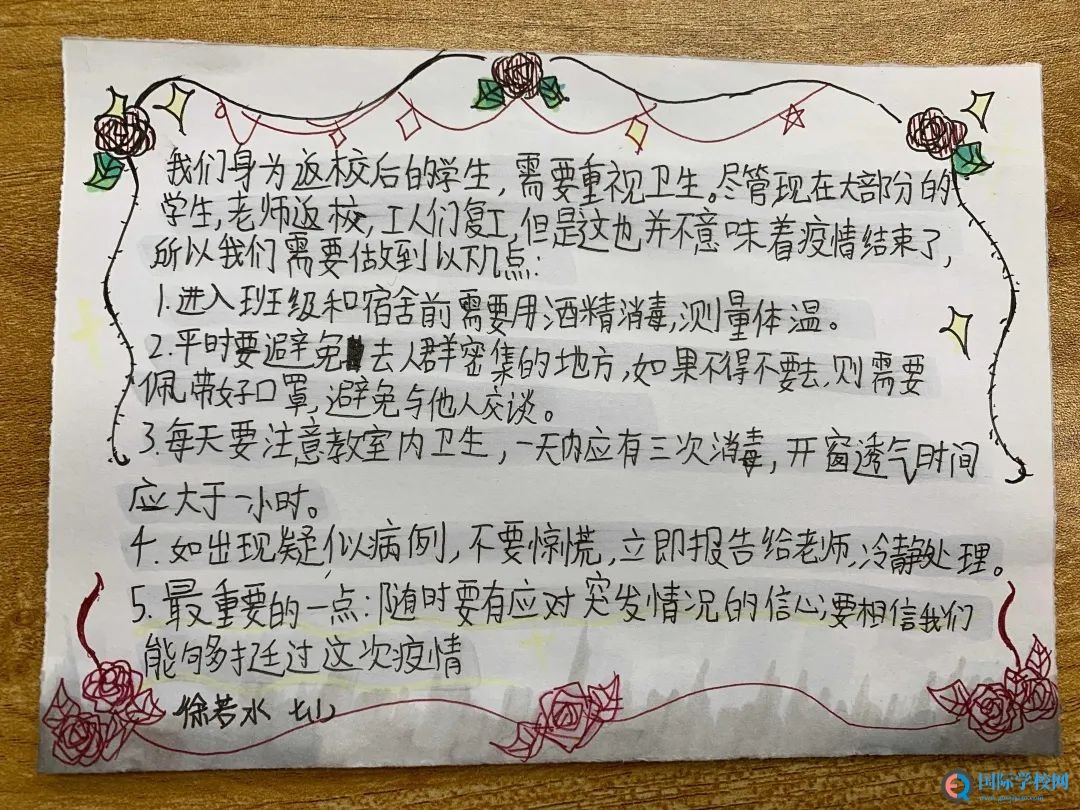 我们身为返校后的学生，需要重视卫生。尽管现在大部分的
学生，老师返校，工人们复工，但是这也并不意味着疫情结束了，
所以我们需要做到以下几点：
1.进入班级和宿舍前需要用酒精消毒，测量体温。
2.平时要避免去人群密集的地方，如果不得不要去，则需要
佩带好口罩，避免与他人交谈。
3.每天要注意教室内卫生，一天内应有三次消毒，开窗透气时间
应大于一小时。
4.如出现疑似病例，不要惊慌，立即报告给老师，冷静处理。
5.最重要的一点：随时要有应对突发情况的信心；要相信我们
能够挺过这次疫情
徐若水
国际学校网